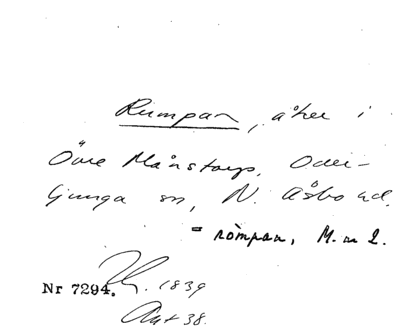 Rumpan, åker i
Övre Månstorp, Oder-
ljunga sn, N. Åsbo hd.
= rompan, M. m 2.
Nr 7294. 1839
Akt 38.